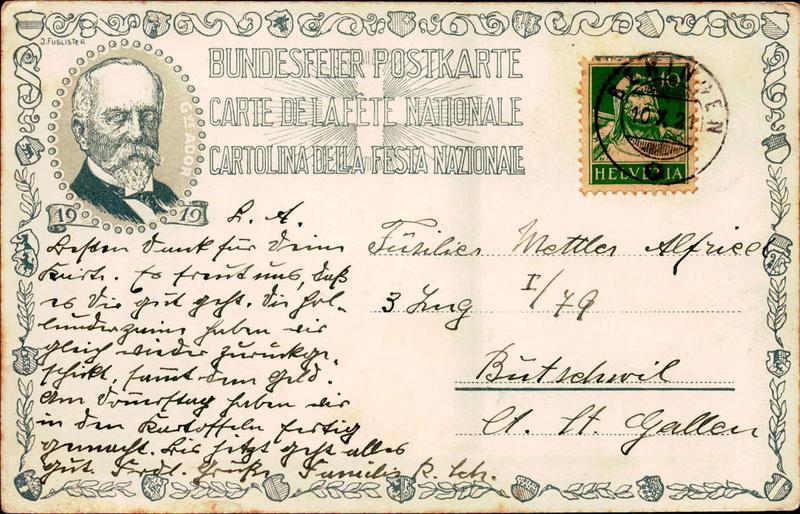 J. FUGLISTER
BUNDESFEIER POSTKARTE
CARTE DE LA FÊTE NATIONALE
CARTOLINA DELLA FESTA NAZIONALE
G. ADOR
1919
10
10.X.21
HELVETIA
L. A.
Besten Dank für Deine
Karte. Es freut uns, daß
es Dir gut geht. Die Hol-
lunderzaine haben wir
gleich wieder zurückge-
schickt, samt dem Geld.
Am Donnerstag haben wir
in den Kartoffeln fertig
gemacht. Bis jetzt geht alles
gut. Frdl. Grüße Familie R.
Füsilier Mettler Alfried
3 Zug I/79
Bütschwil
Ct. St. Gallen